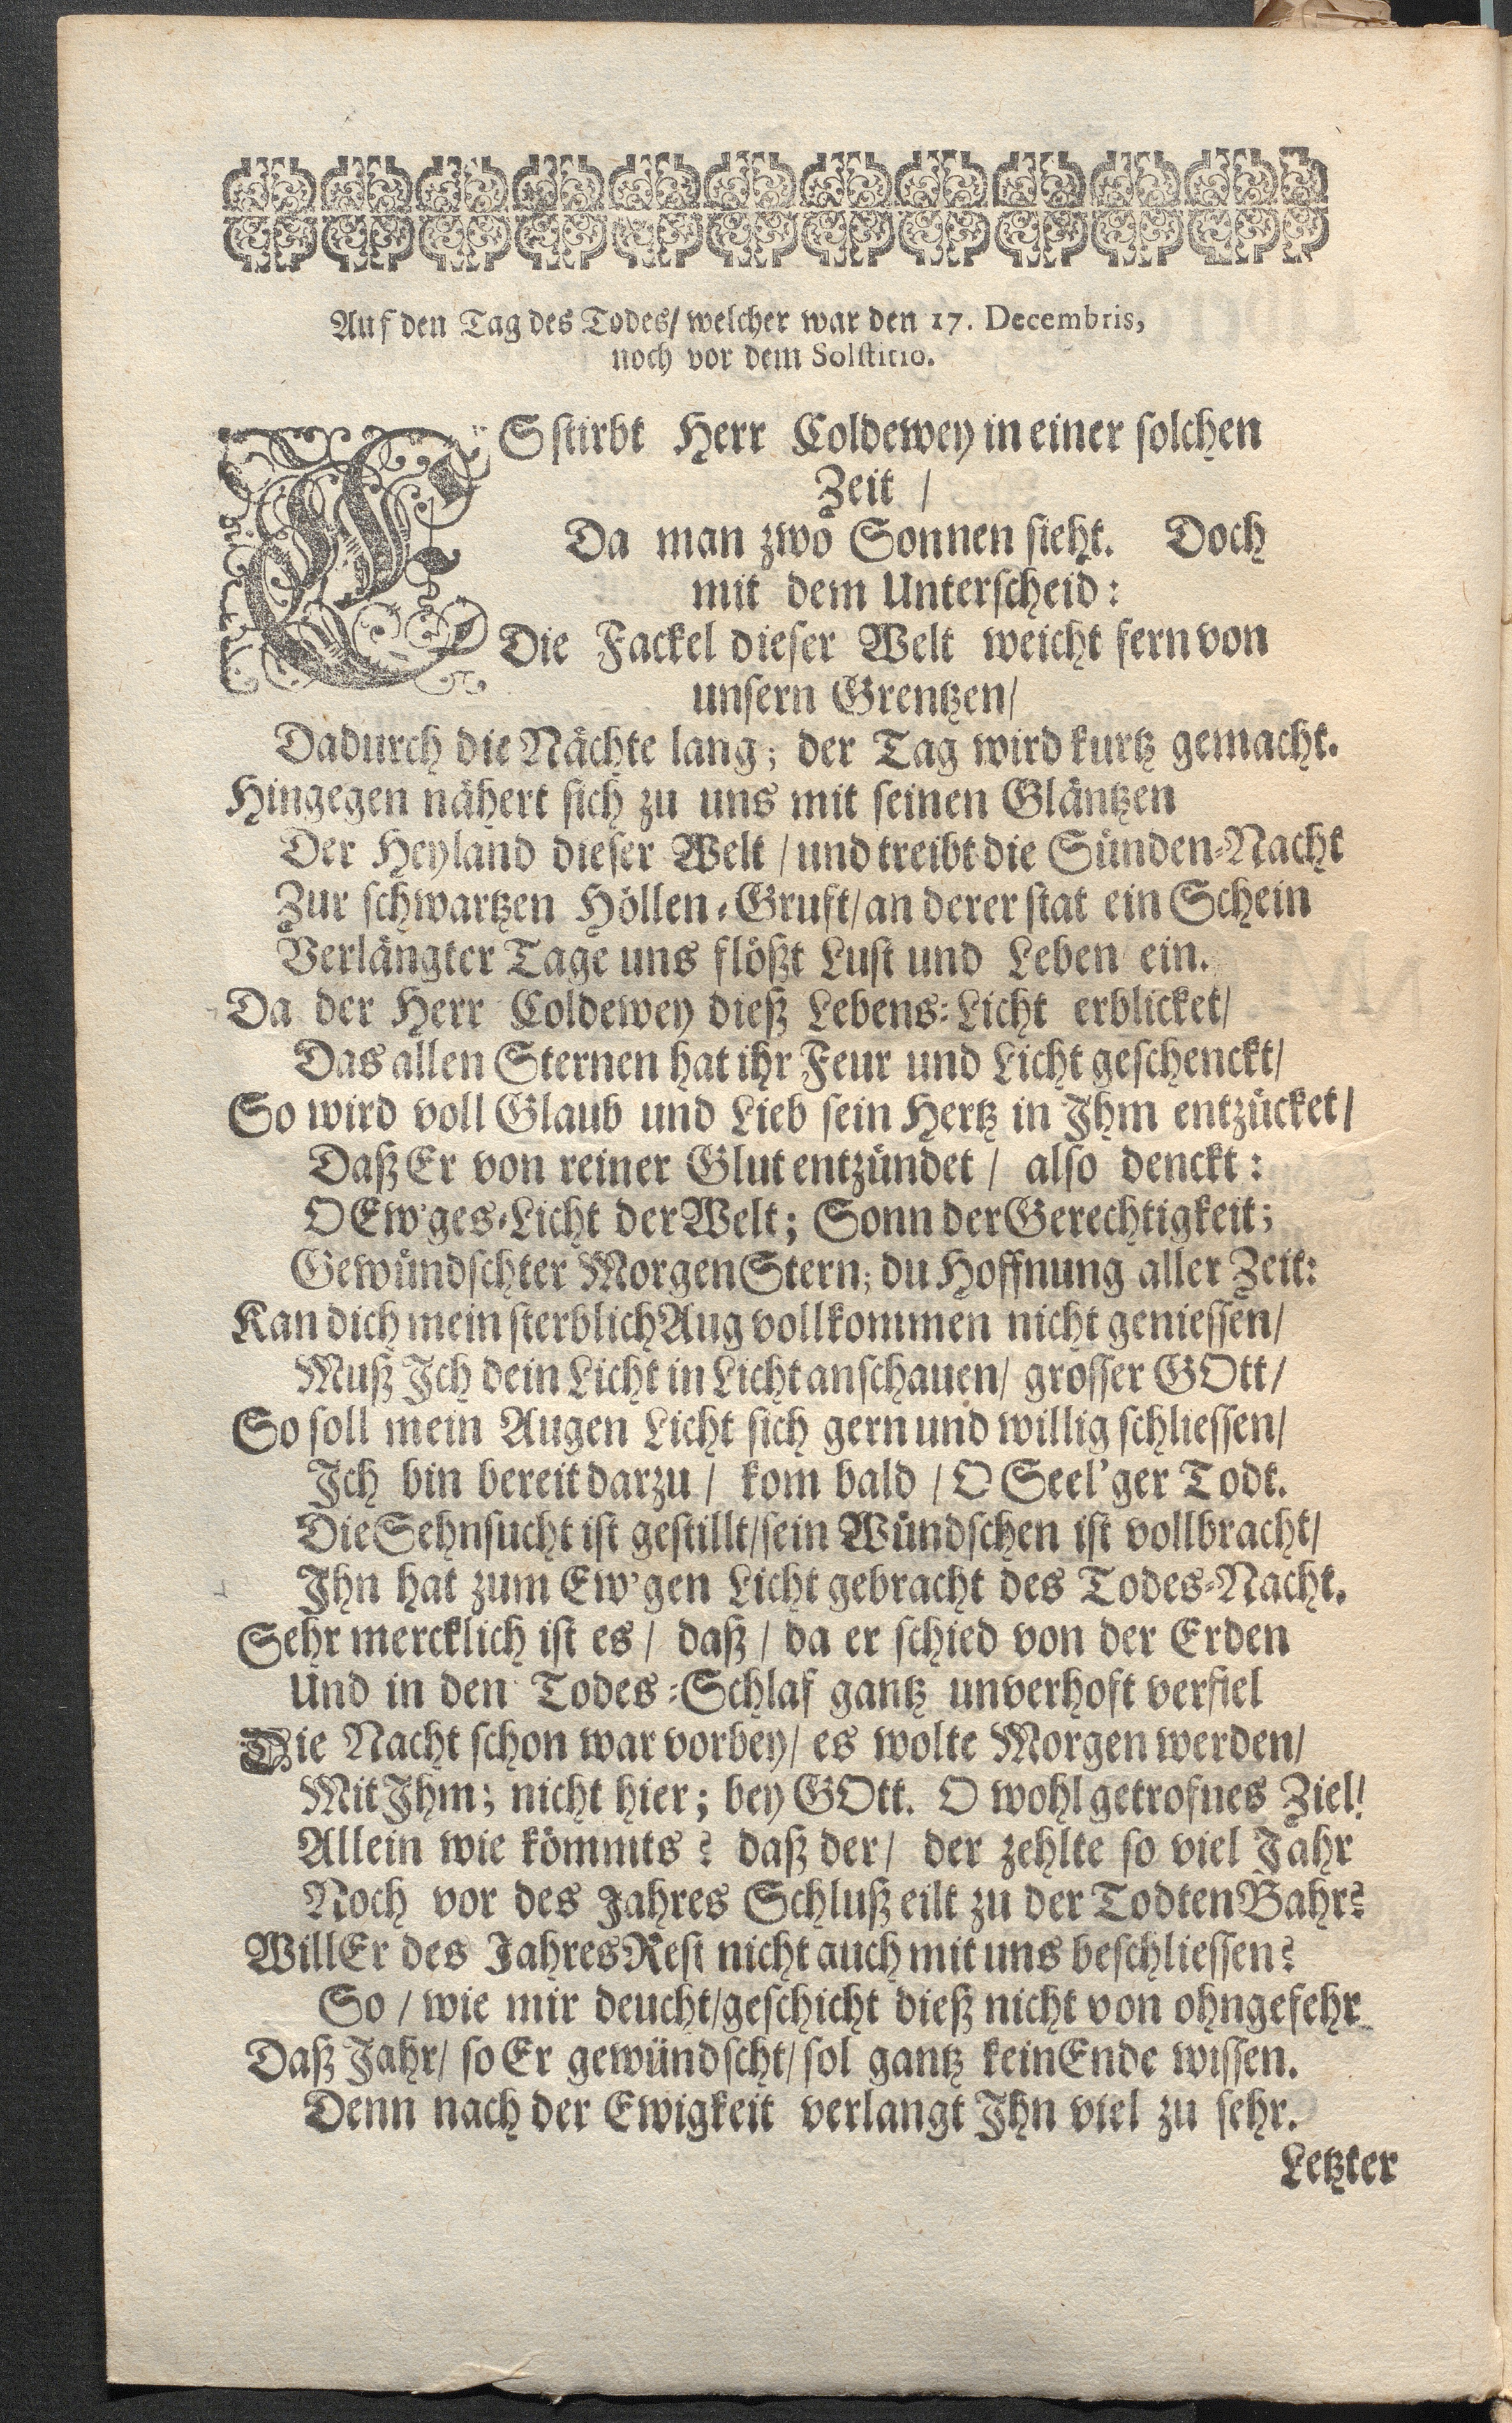 Auf den Tag des Todes/ welcher war den 17. Decembris,
noch vor dem Solstitio.
ES stirbt Herr Coldewey in einer solchen
Zeit /
Da man zwo Sonnen sieht. Doch
mit dem Unterscheid:
Die Fackel dieser Welt weicht fern von
unsern Grentzen/
Dadurch die Nächte lang; der Tag wird kurtz gemacht.
Hingegen nähert sich zu uns mit seinen Gläntzen
Der Heyland dieser Welt / und treibt die Sünden-Nacht
Zur schwartzen Höllen-Gruft/ an derer stat ein Schein
Verlängter Tage uns flößt Lust und Leben ein.
Da der Herr Coldewey dieß Lebens-Licht erblicket/
Das allen Sternen hat ihr Feur und Licht geschenckt/
So wird voll Glaub und Lieb sein Hertz in Ihm entzücket/
Daß Er von reiner Glut entzündet / also denckt:
O Ew'ges-Licht der Welt; Sonn der Gerechtigkeit;
Gewündschter Morgen Stern; du Hoffnung aller Zeit:
Kan dich mein sterblich Aug vollkommen nicht geniessen/
Muß Ich dein Licht in Licht anschauen/ grosser GOtt/
So soll mein Augen Licht sich gern und willig schliessen/
Ich bin bereit darzu / kom bald / O Seel'ger Todt.
Die Sehnsucht ist gestillt/ sein Wündschen ist vollbracht/
Ihn hat zum Ew'gen Licht gebracht des Todes-Nacht.
Sehr mercklich ist es / daß / da er schied von der Erden
Und in den Todes-Schlaf gantz unverhoft verfiel
Die Nacht schon war vorbey/ es wolte Morgen werden/
Mit Ihm; nicht hier; bey GOtt. O wohl getrofnes Ziel!
Allein wie kömmts? daß der/ der zehlte so viel Jahr
Noch vor des Jahres Schluß eilt zu der Todten Bahr?
Will Er des Jahres Rest nicht auch mit uns beschliessen?
So / wie mir deucht/ geschicht dieß nicht von ohngefehr
Daß Jahr/ so Er gewündscht/ sol gantz kein Ende wissen.
Denn nach der Ewigkeit verlangt Ihn viel zu sehr.
Letzter